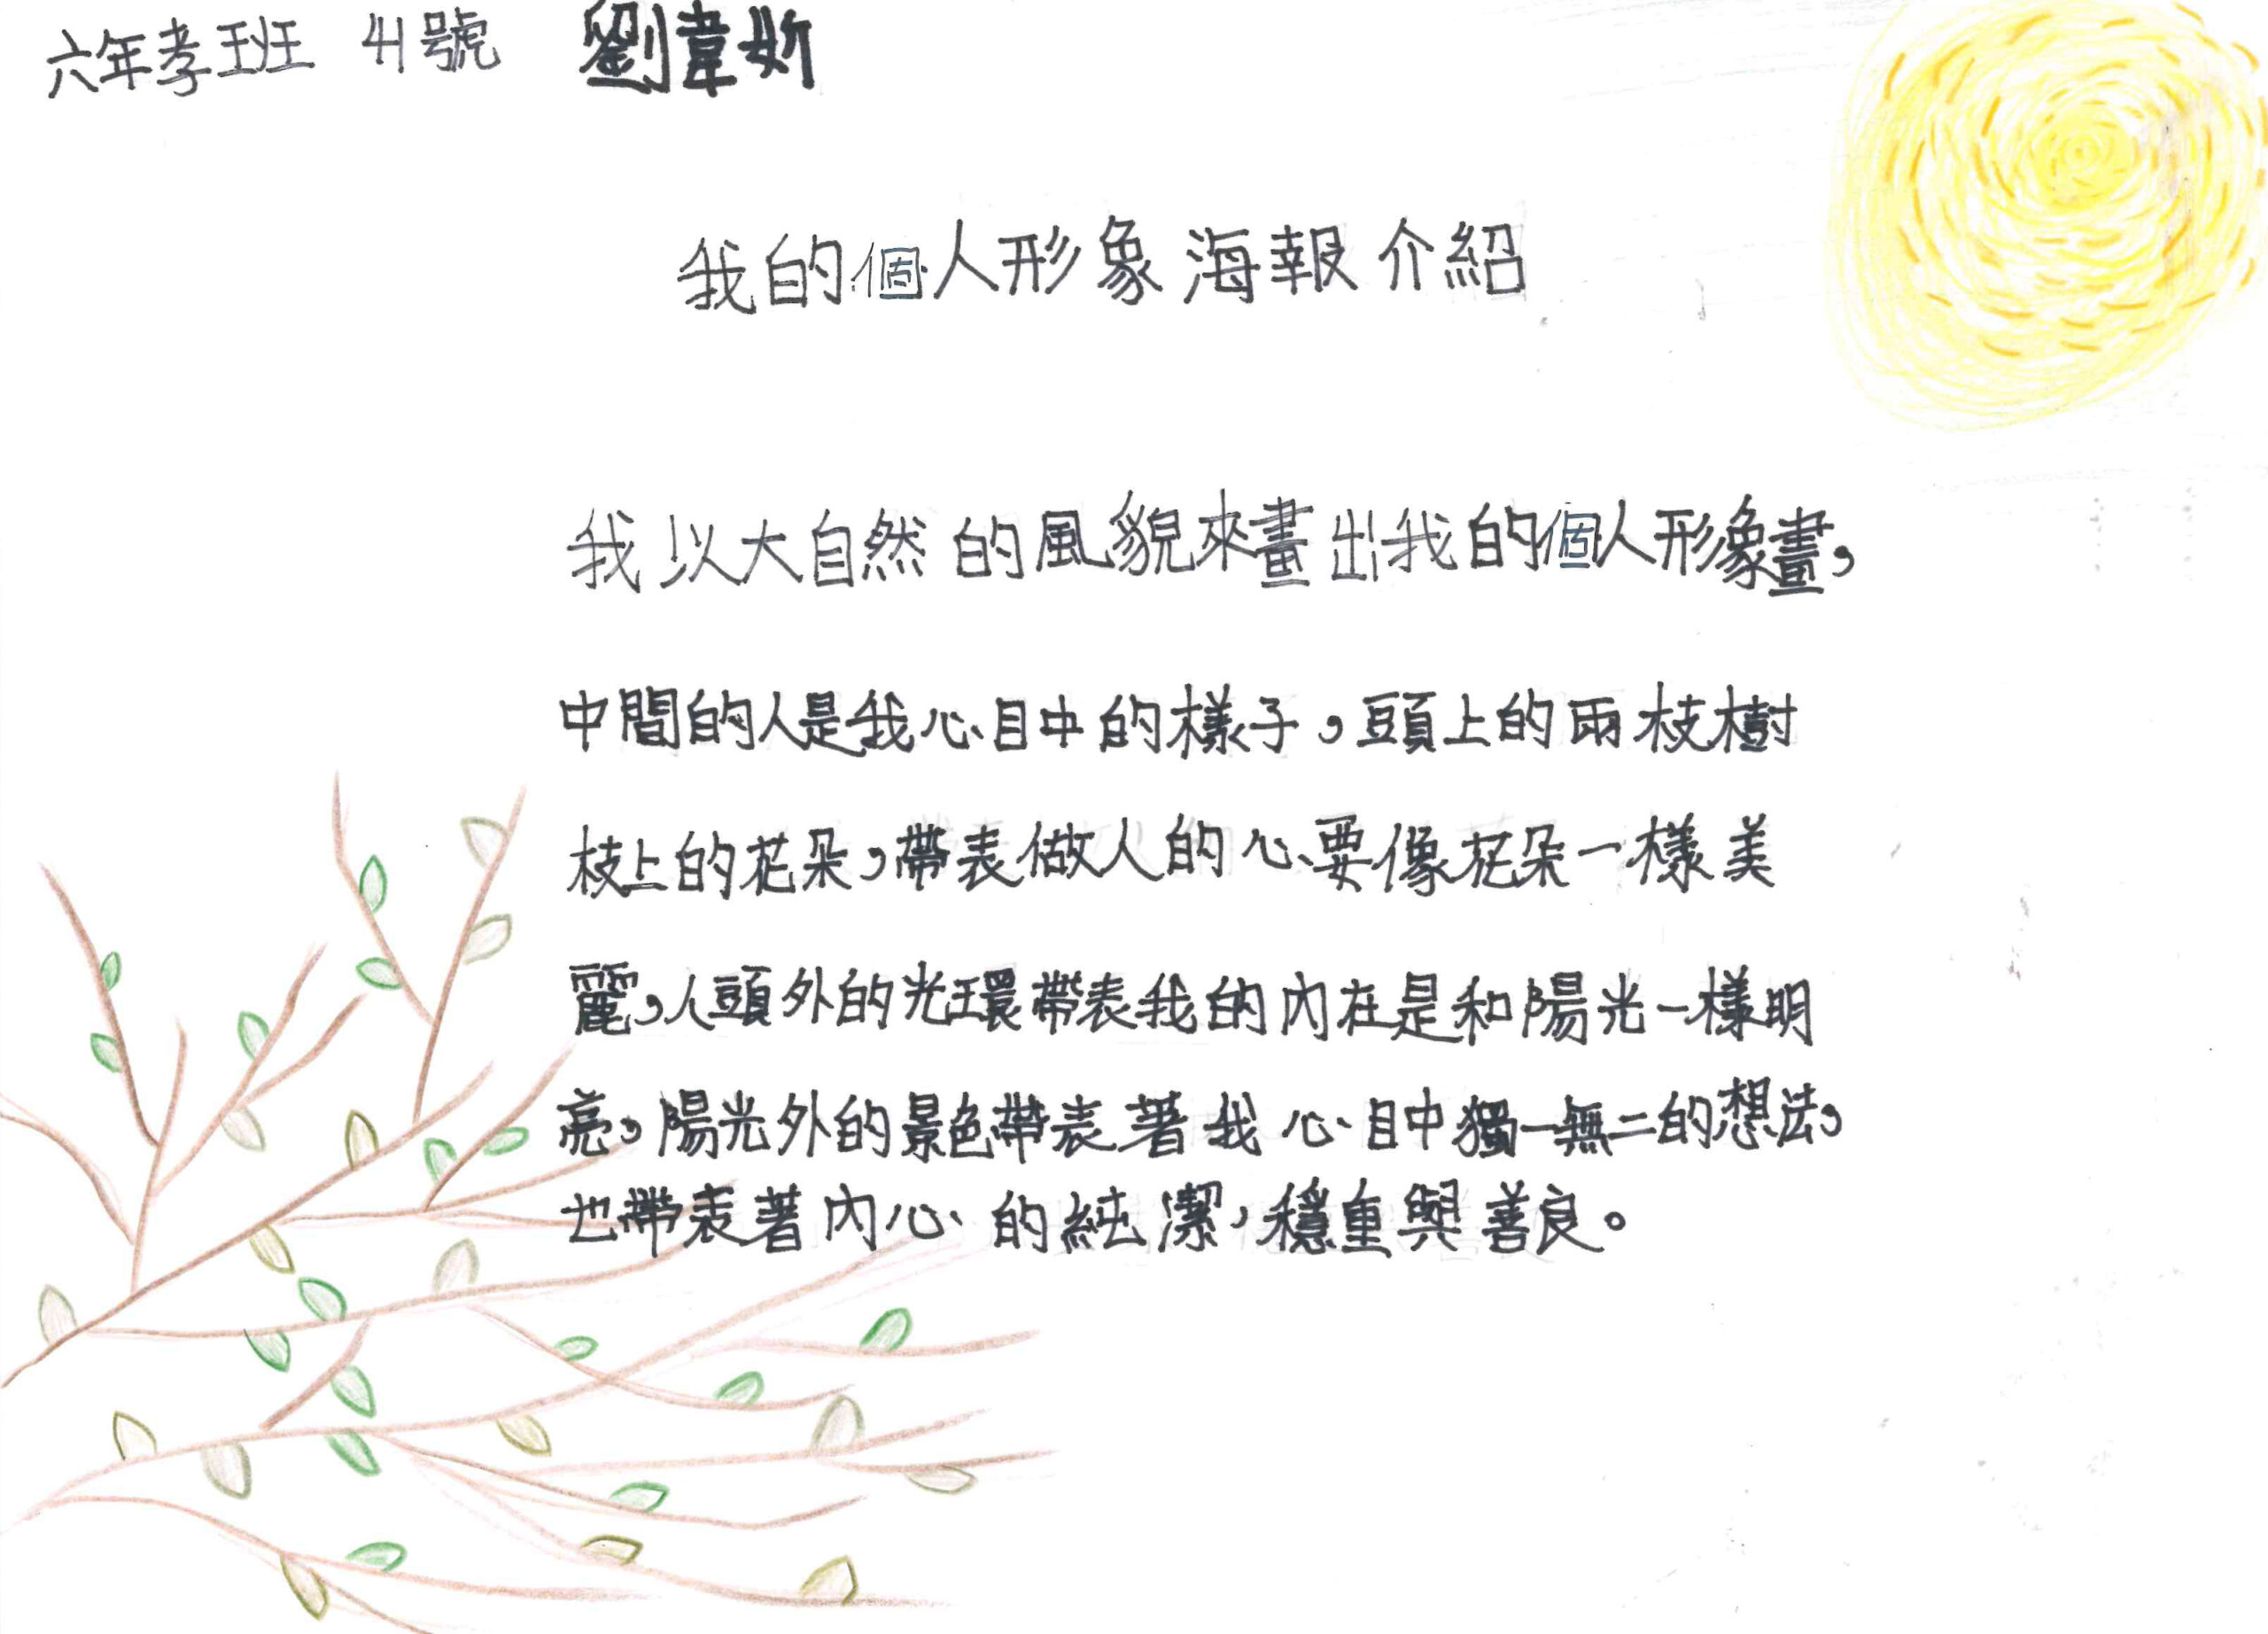 六年孝班 41號 劉韋妡
我的個人形象海報介紹
我以大自然的風貌來畫出我的個人形象畫，
中間的人是我心目中的樣子，頭上的兩枝樹
枝上的花朵，帶表做人的心要像花朵一樣美
麗，人頭外的光環帶表我的內在是和陽光一樣明
亮，陽光外的景色帶表著我心目中獨一無二的想法，
也帶表著內心的純潔，穩重與善良。